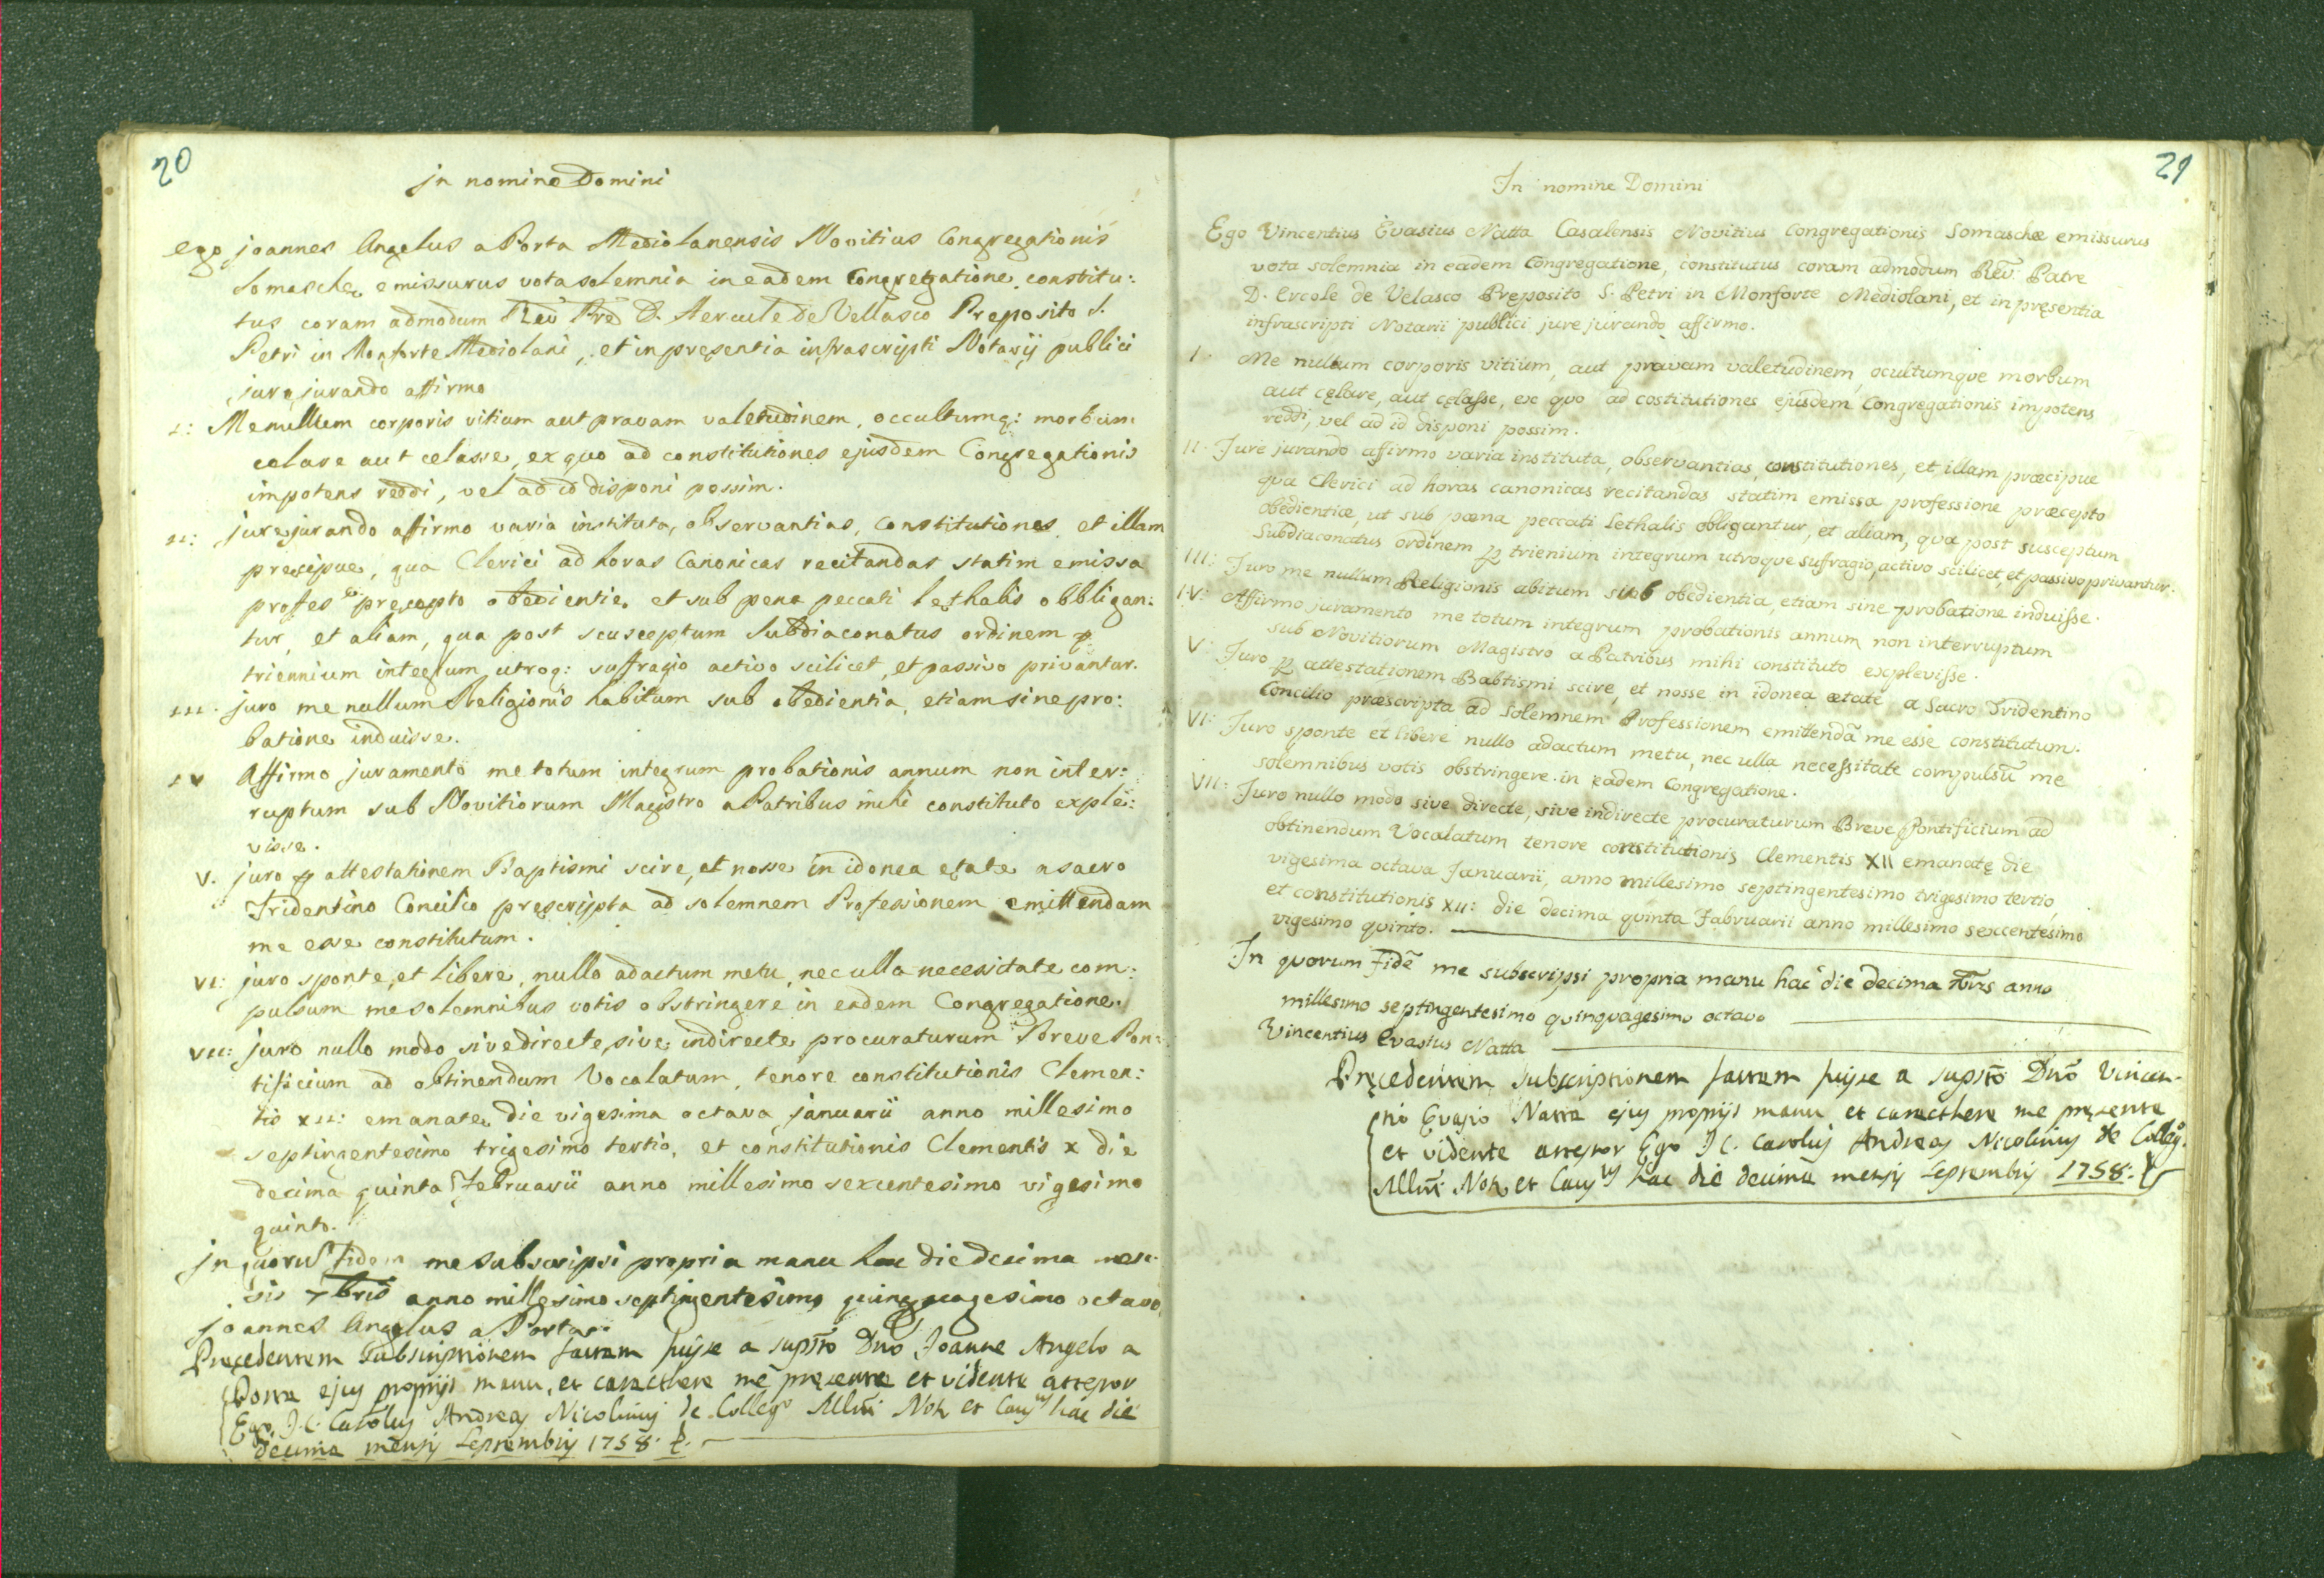 20
jn nomine Domini
ego joannes Angelus a Porta Mediolanensis Novitius Congregationis
Somasche emissurus vota solemnia in eadem Congregatione constitu:
tus coram admodum Rev̄ Prē D. Hercule de Vellasco Preposito S.
Petri in Monforte Mediolani, et in presentia infrascripti Notarij publici
jure jurando affirmo
I: Me nullum corporis vitium aut pravam valetudinem, occultumq: morbum
celare aut celasse, ex quo ad constitutiones ejusdem Congregationis
impotens reddi, vel ad id disponi possim.
II: jure jurando affirmo varia instituta, observantias, constitutiones, et illam
precipue, qua Clerici ad horas Canonicas recitandas statim emissa
profes.e precepto obedientie, et sub pena peccati lethalis obbligan:
tur, et aliam, qua post scusceptum Subdiaconatus ordinem p
triennium integrum utroq: suffragio activo scilicet, et passivo privantur.
III. juro me nullum Religionis habitum sub obedientia, etiam sine pro:
batione induisse.
IV Affirmo juramento me totum integrum probationis annum non inter:
ruptum sub Novitiorum Magistro a Patribus mihi constituto exple:
visse.
V. juro p attestationem Baptismi scire, et nosse in idonea etate a sacro
Tridentino Concilio prescripta ad solemnem Professionem emittendam
me esse constitutum.
VI: juro sponte, et libere, nullo adactum metu, nec ulla necessitate com:
pulsum me solemnibus votis obstringere in eadem Congregatione.
VII: juro nullo modo sive directe, sive indirecte procuraturum Breve Pon:
tificium ad obtinendum Vocalatum, tenore constitutionis Clemen:
tis XII: emanate die vigesima octava januarii anno millesimo
septingentesimo trigesimo tertio, et constitutionis Clementis X die
decima quinta Februarii anno millesimo sexcentesimo vigesimo
quinto.
jn quoru fidem me subscripsi propria manu hac die decima men:
sis 7bris anno millesimo septingentesimo quinquagesimo octavo
joannes Angelus a Porta
Precedentem Subscriptionem factam fuisse a supsto Dno Joanne Angelo a
Porta ejus proprijs manu, et caracthere me presente et vidente attestor
Ego J. C. Carolus Andreas Nicolinus de Collego Mllni Not et Caus hac die
decima mensis Septembris 1758.
21
In nomine Domini
Ego Vincentius Evasius Natta Casalensis Novitius Congregationis Somaschæ emissurus
vota solemnia in eadem Congregatione, constitutus coram admodum Rev̄: Patre
D. Ercole de Velasco Pręposito S. Petri in Monforte Mediolani, et in pręsentia
infrascripti Notarii publici jure jurando affirmo.
I. Me nullum corporis vitium, aut pravam valetudinem, ocultumque morbum
aut cęlare, aut cęlasse, ex quo ad costitutiones ejusdem Congregationis impotens
reddi, vel ad id disponi possim.
II. Jure jurando affirmo varia instituta, observantias, constitutiones, et illam præcipue
qua Clerici ad horas canonicas recitandas statim emissa professione præcepto
obedientiæ, ut sub pœna peccati Lethalis obligantur, et aliam, qua post susceptum
Subdiaconatus ordinem p trienium integrum utroque suffragio, activo scilicet, et passivo privantur.
III: Juro me nullum Religionis abitum sub obedientia, etiam sine probatione induisse.
IV: Affirmo juramento me totum integrum probationis annum non interruptum
sub Novitiorum Magistro a Patribus mihi constituto explevisse.
V: Juro p attestationem Babtismi scire, et nosse in idonea ætate a Sacro Tridentino
Concilio præscripta ad Solemnem Professionem emittendā me esse constitutum.
VI: Juro sponte et libere nullo adactum metu, nec ulla necessitate compulsū me
solemnibus votis obstringere in eadem Congregatione.
VII: Juro nullo modo sive directe, sive indirecte procuraturum Breve Pontificium ad
obtinendum Vocalatum tenore constitutionis Clementis XII emanatę die
vigesima octava Januarii, anno millesimo septingentesimo trigesimo tertio,
et constitutionis XII: die decima quinta Fabruarii anno millesimo sexcentesimo
vigesimo quinto.
In quorum Fidē me subscripsi propria manu hac die decima 7bris anno
millesimo septingentesimo quinquagesimo octavo
Vincentius Evasius Natta
Pręcedentem subscriptionem factam fuisse a supsto Dno Vincen-
tio Evasio Natta ejus proprijs manu et caracthere me pręsente
et vidente attestor Ego J. C. Carolus Andreas Nicolinus de Collego.
Mllni Not et Caus hac die decima mensis Septembris 1758.